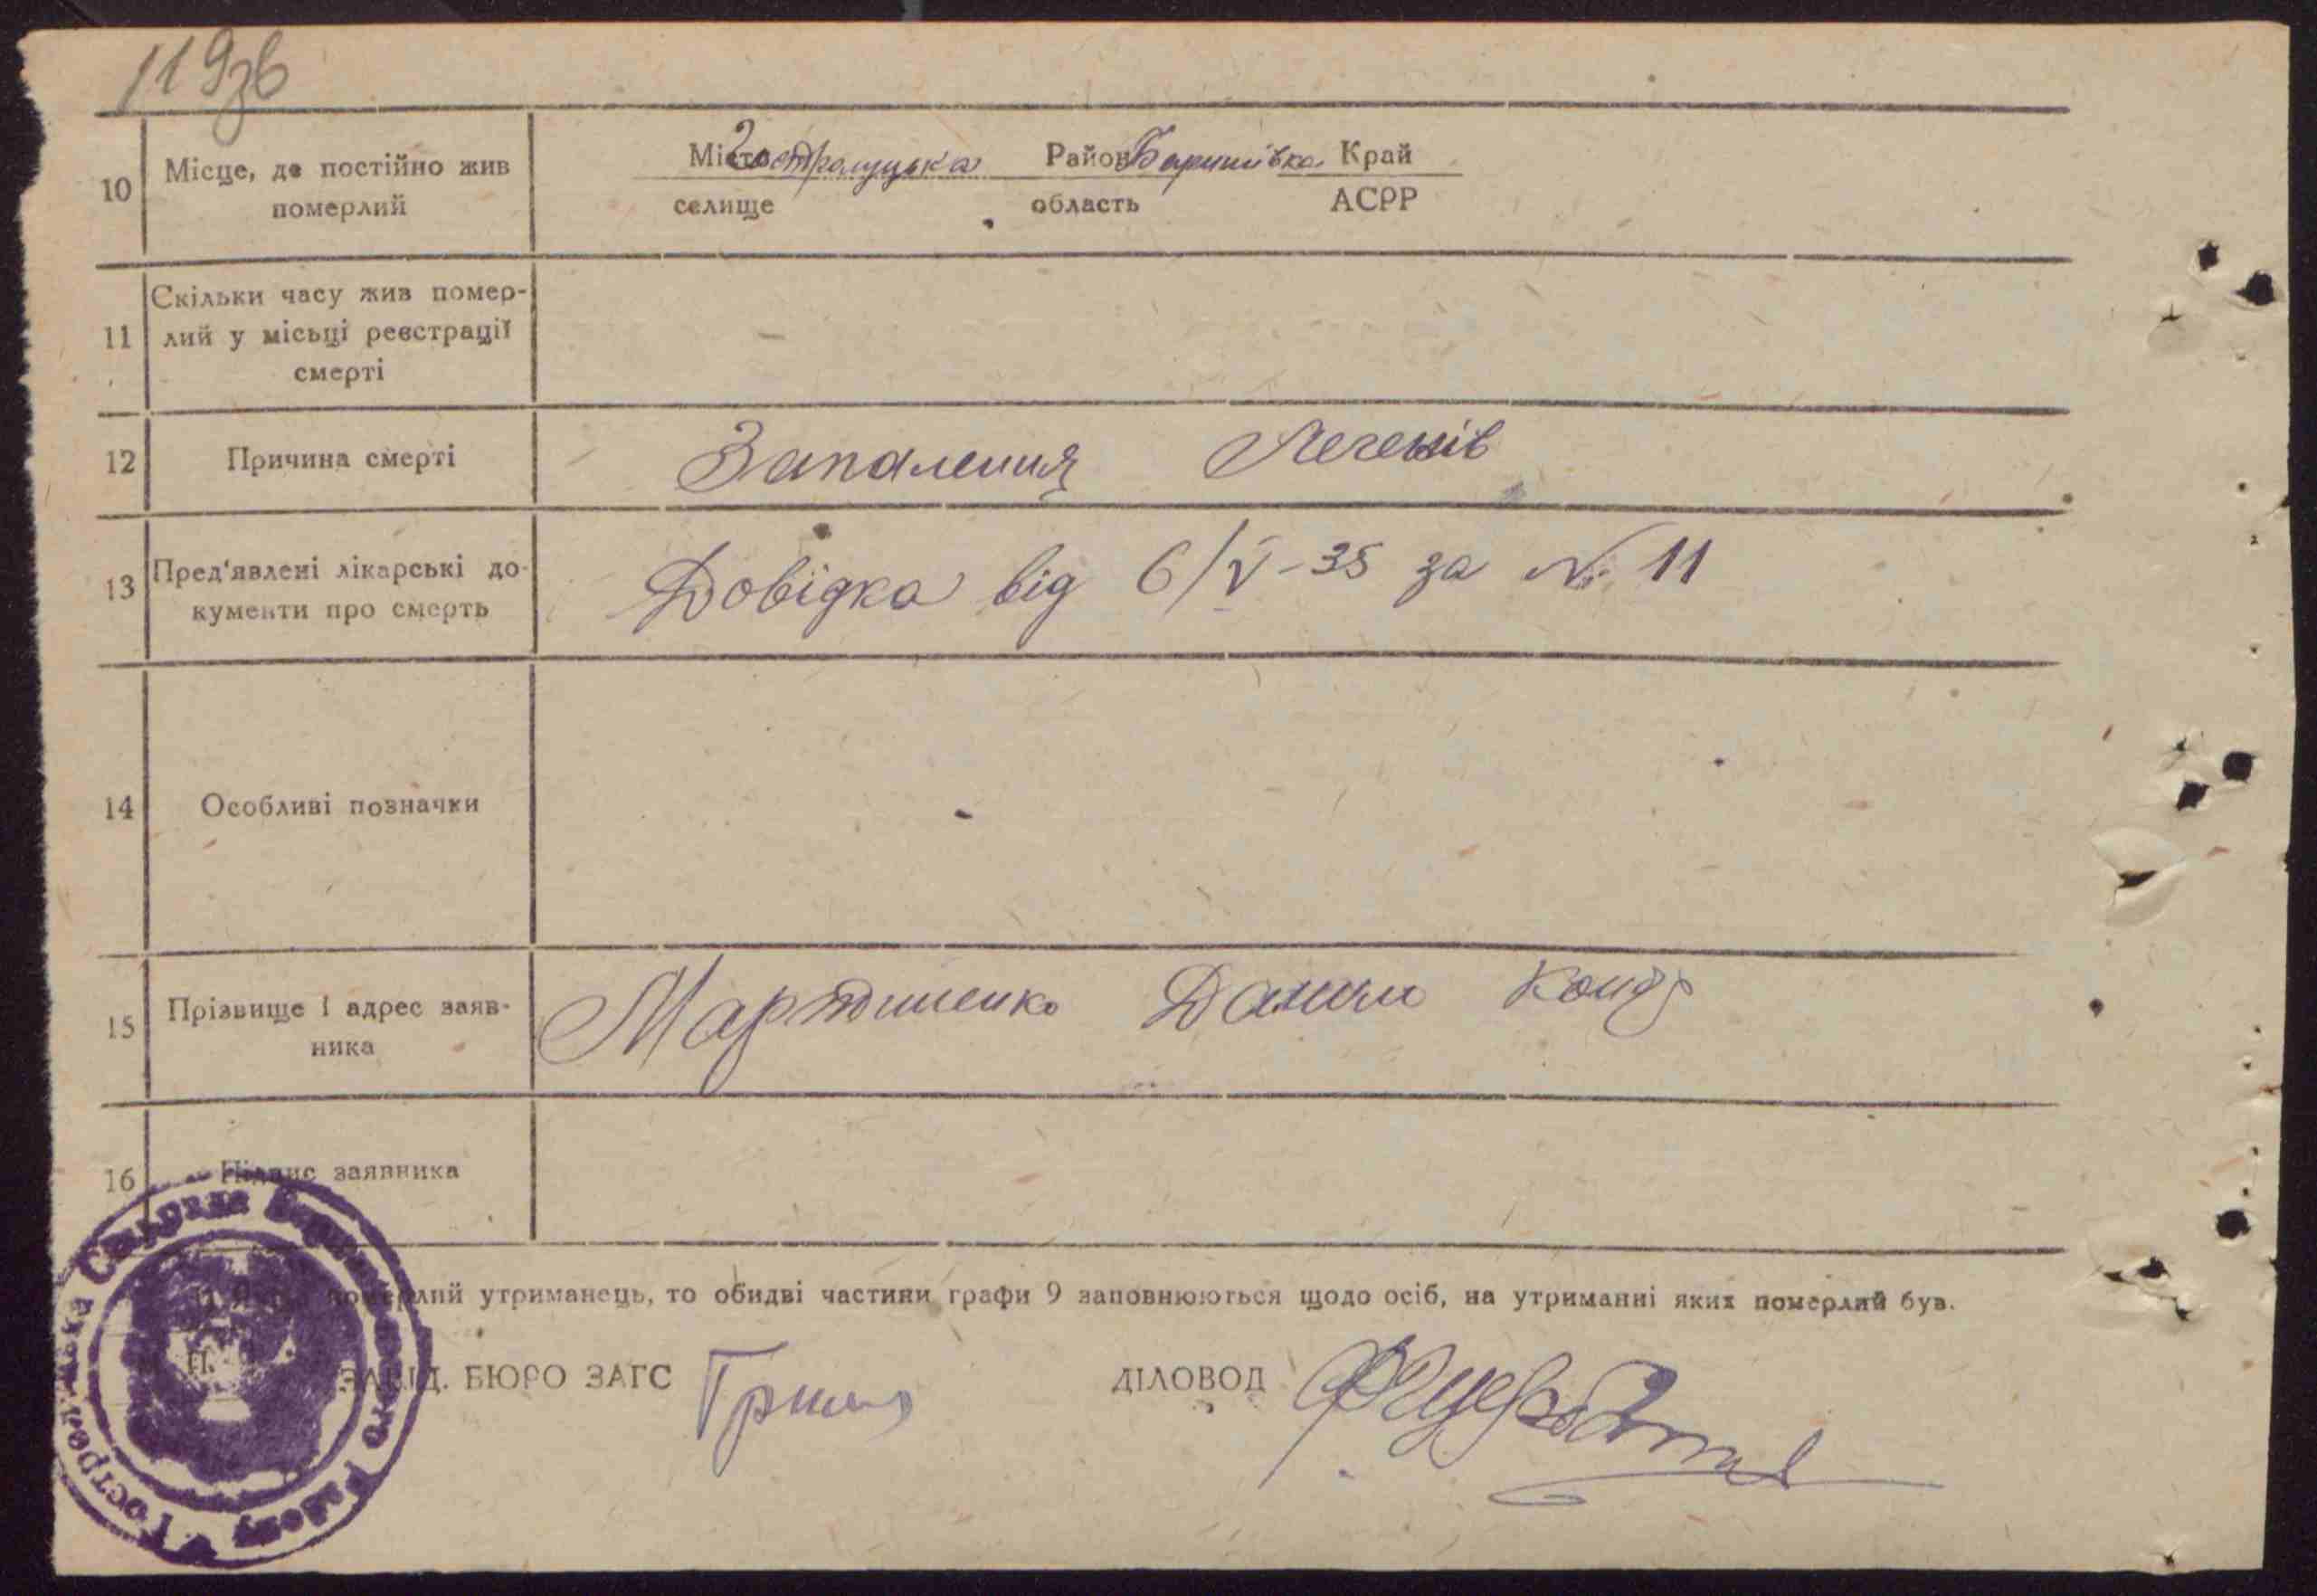 119зв
10 Місце, де постійно жив померлий
Місто Гостролуцька Район Баришівка Край
селище область АСРР
11 Скільки часу жив помер-
лий у місьці реєстрації
смерті
12 Причина смерті Запалення Легенів
13 Пред'явлені лікарські до-
кументи про смерть
Довідка від 6/V-35 за № 11
14 Особливі позначки
-
15 Прізвище і адрес заяв-
ника
Мартиненко Данило Конд
16 Підпис заявника
померлий утриманець, то обидві частини графи 9 заповнюються щодо осіб, на утриманні яких померлий був.
ЗАВІД. БЮРО ЗАГС ДІЛОВОД
Гостролуцька Сільрада Району